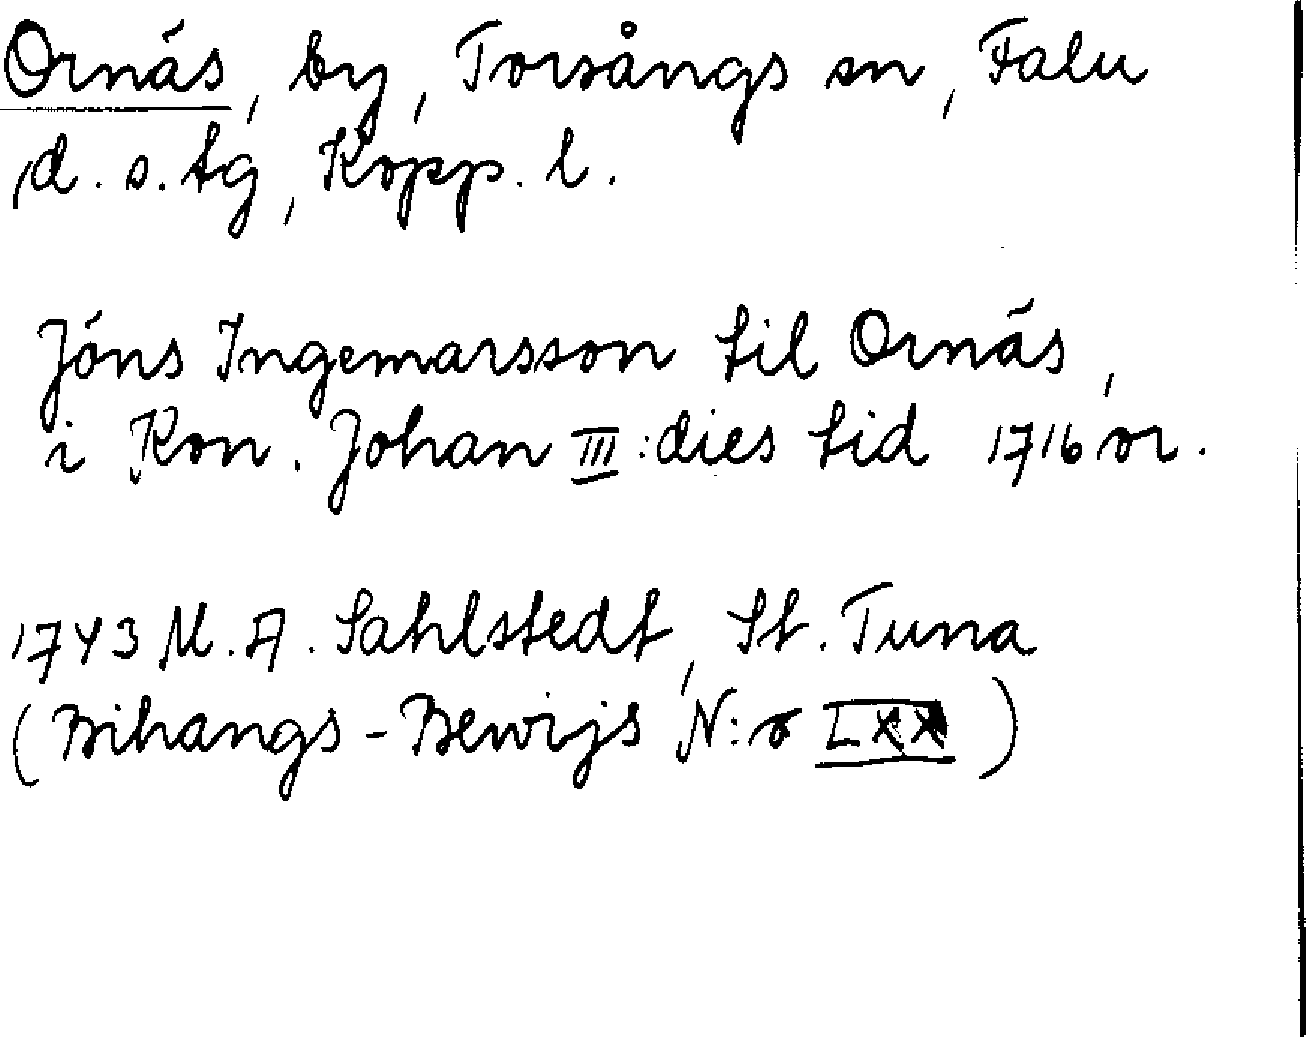 Ornäs, by, Torsångs sn, Falu
d. s. tg, Kopp. l.
Jöns Ingemarsson til Ornäs,
i Kon. Johan III:dies tid 1716 or.
1743 M. A. Sahlstedt, St. Tuna
(Bihangs-Bewijs N:o LXX)